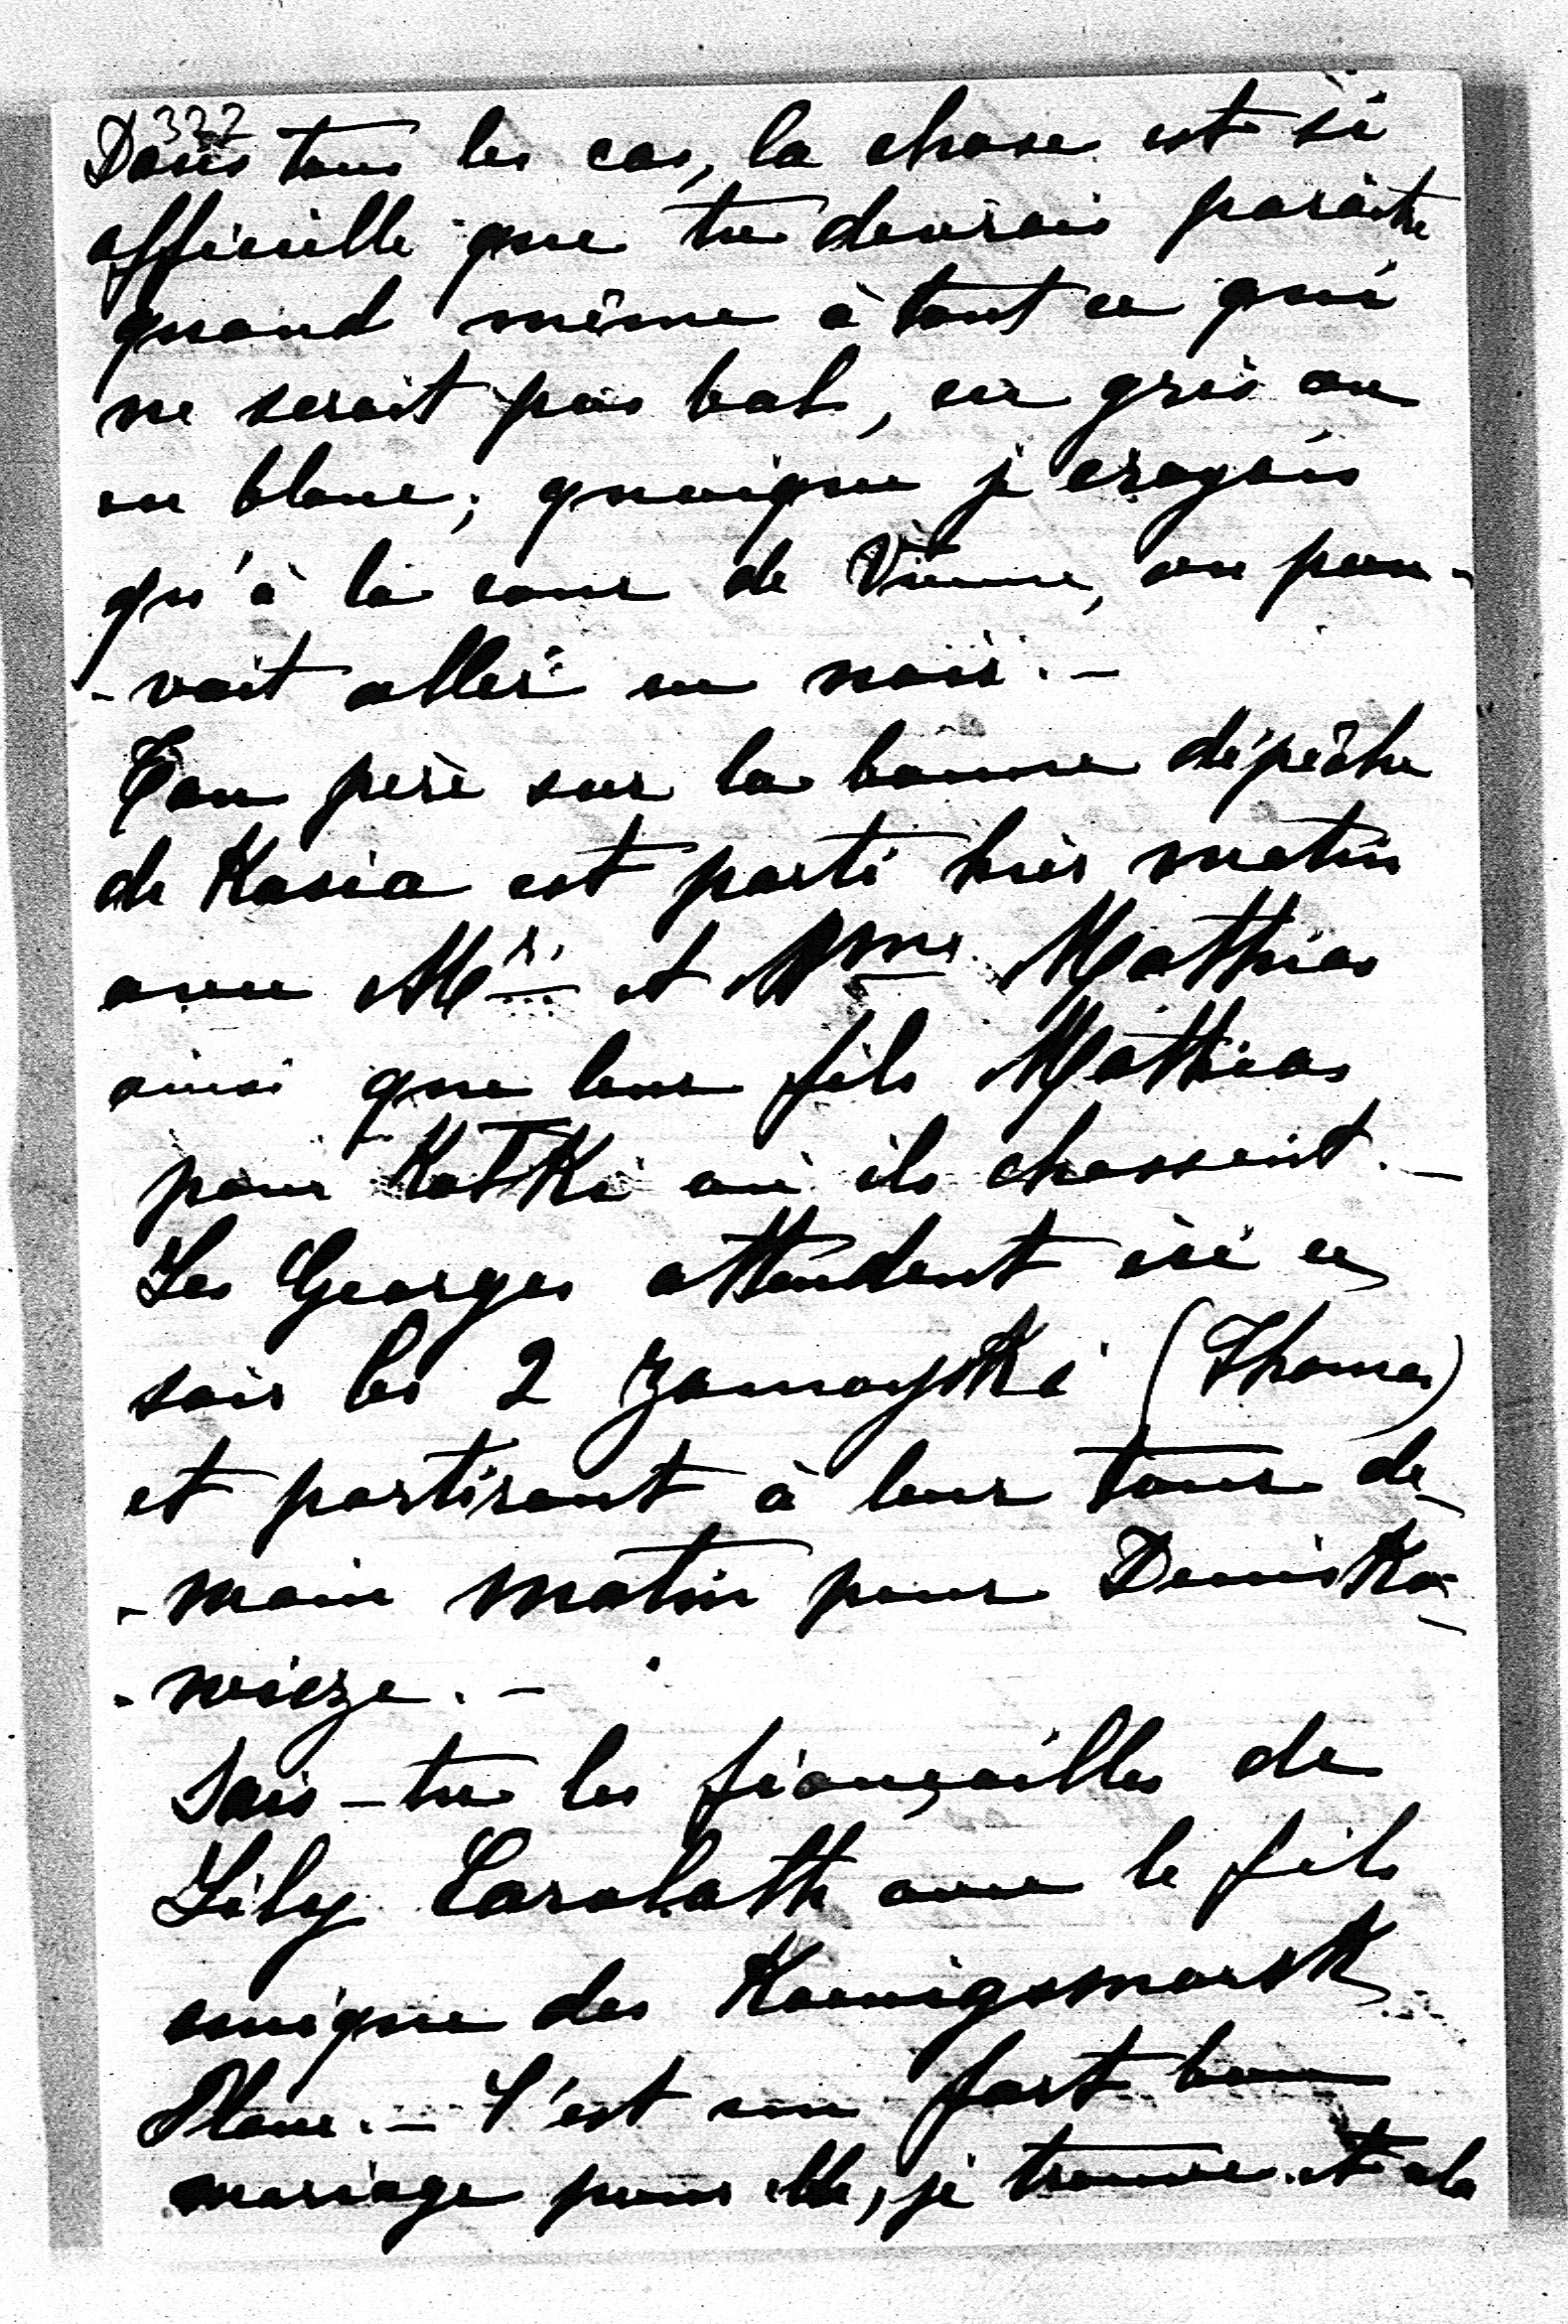 322
Dans tous les cas, la chose est si
officielle que tu devrais paraître
quand même à tout ce qui
ne serait pas bal, en gris ou
en blanc; quoique je croyais
qu'à la cour de Vienne, on pou-
-vait aller en noir. -
Ton père sur la bonne dépêche
de Kasia est parti hier matin
avec Mr. et Mme Mathias
ainsi que leur fils Mathias
pour Kotki où ils chassent. -
Les Georges attendent ici ce
soir les 2 Zamoyski (Thomas)
et partiront à leur tour de-
-main matin pour Denisko-
-wicze. -
Sais-tu les fiançailles de
Lily Carolath avec le fils
unique des Koenigsmark
Plaue. - C'est un fort bon
mariage pour elle, je trouve et ala